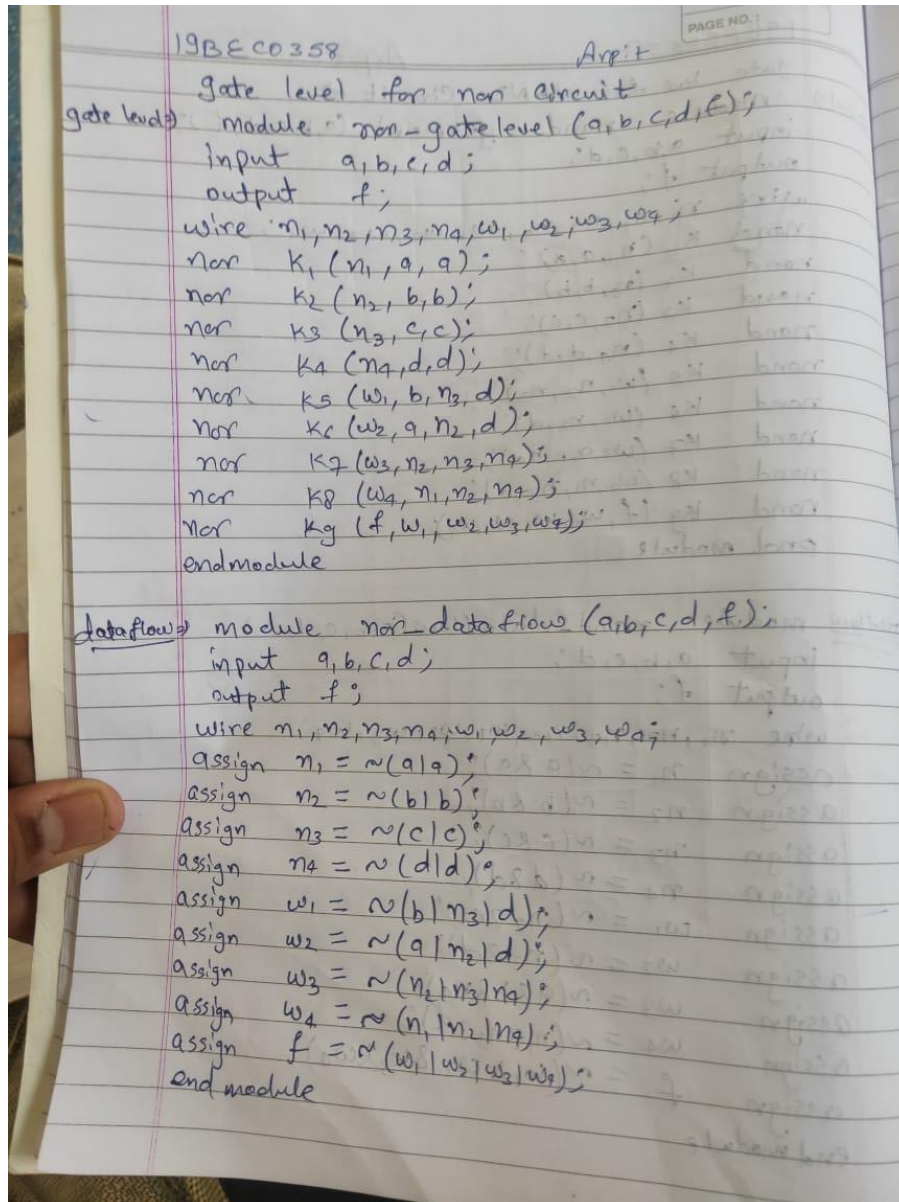 PAGE NO.:
19BEC0358 Arpit
gate level for nor Circuit
gate level⇒ module nor-gatelevel (a,b,c,d,f);
input a,b,c,d;
output f;
wire n1,n2,n3,n4,w1,w2,w3,w4;
nor K1 (n1,a,a);
nor K2 (n2,b,b);
nor K3 (n3,c,c);
nor K4 (n4,d,d);
nor K5 (w1,b,n3,d);
nor K6 (w2,a,n2,d);
nor K7 (w3,n2,n3,n4);
nor K8 (w4,n1,n2,n4);
nor K9 (f,w1,w2,w3,w4);
endmodule
dataflow⇒ module nor-dataflow (a,b,c,d,f);
input a,b,c,d;
output f;
wire n1,n2,n3,n4,w1,w2,w3,w4;
assign n1 = ~(a|a);
assign n2 = ~(b|b);
assign n3 = ~(c|c);
assign n4 = ~(d|d);
assign w1 = ~(b|n3|d);
assign w2 = ~(a|n2|d);
assign w3 = ~(n2|n3|n4);
assign w4 = ~(n1|n2|n4);
assign f = ~(w1|w2|w3|w4);
end module